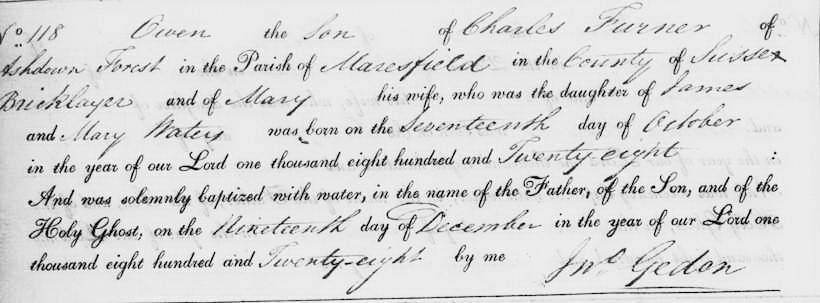 No. 118 Owen the Son of Charles Turner of
Ashdown Forest in the Parish of Maresfield in the County of Sussex
Bricklayer and of Mary his wife, who was the daughter of James
and Mary Waters was born on the Seventeenth day of October
in the year of our Lord one thousand eight hundred and Twenty-eight :
And was solemnly baptized with water, in the name of the Father, of the Son, and of the
Holy Ghost, on the Nineteenth day of December in the year of our Lord one
thousand eight hundred and Twenty-eight by me Jno. Gedon